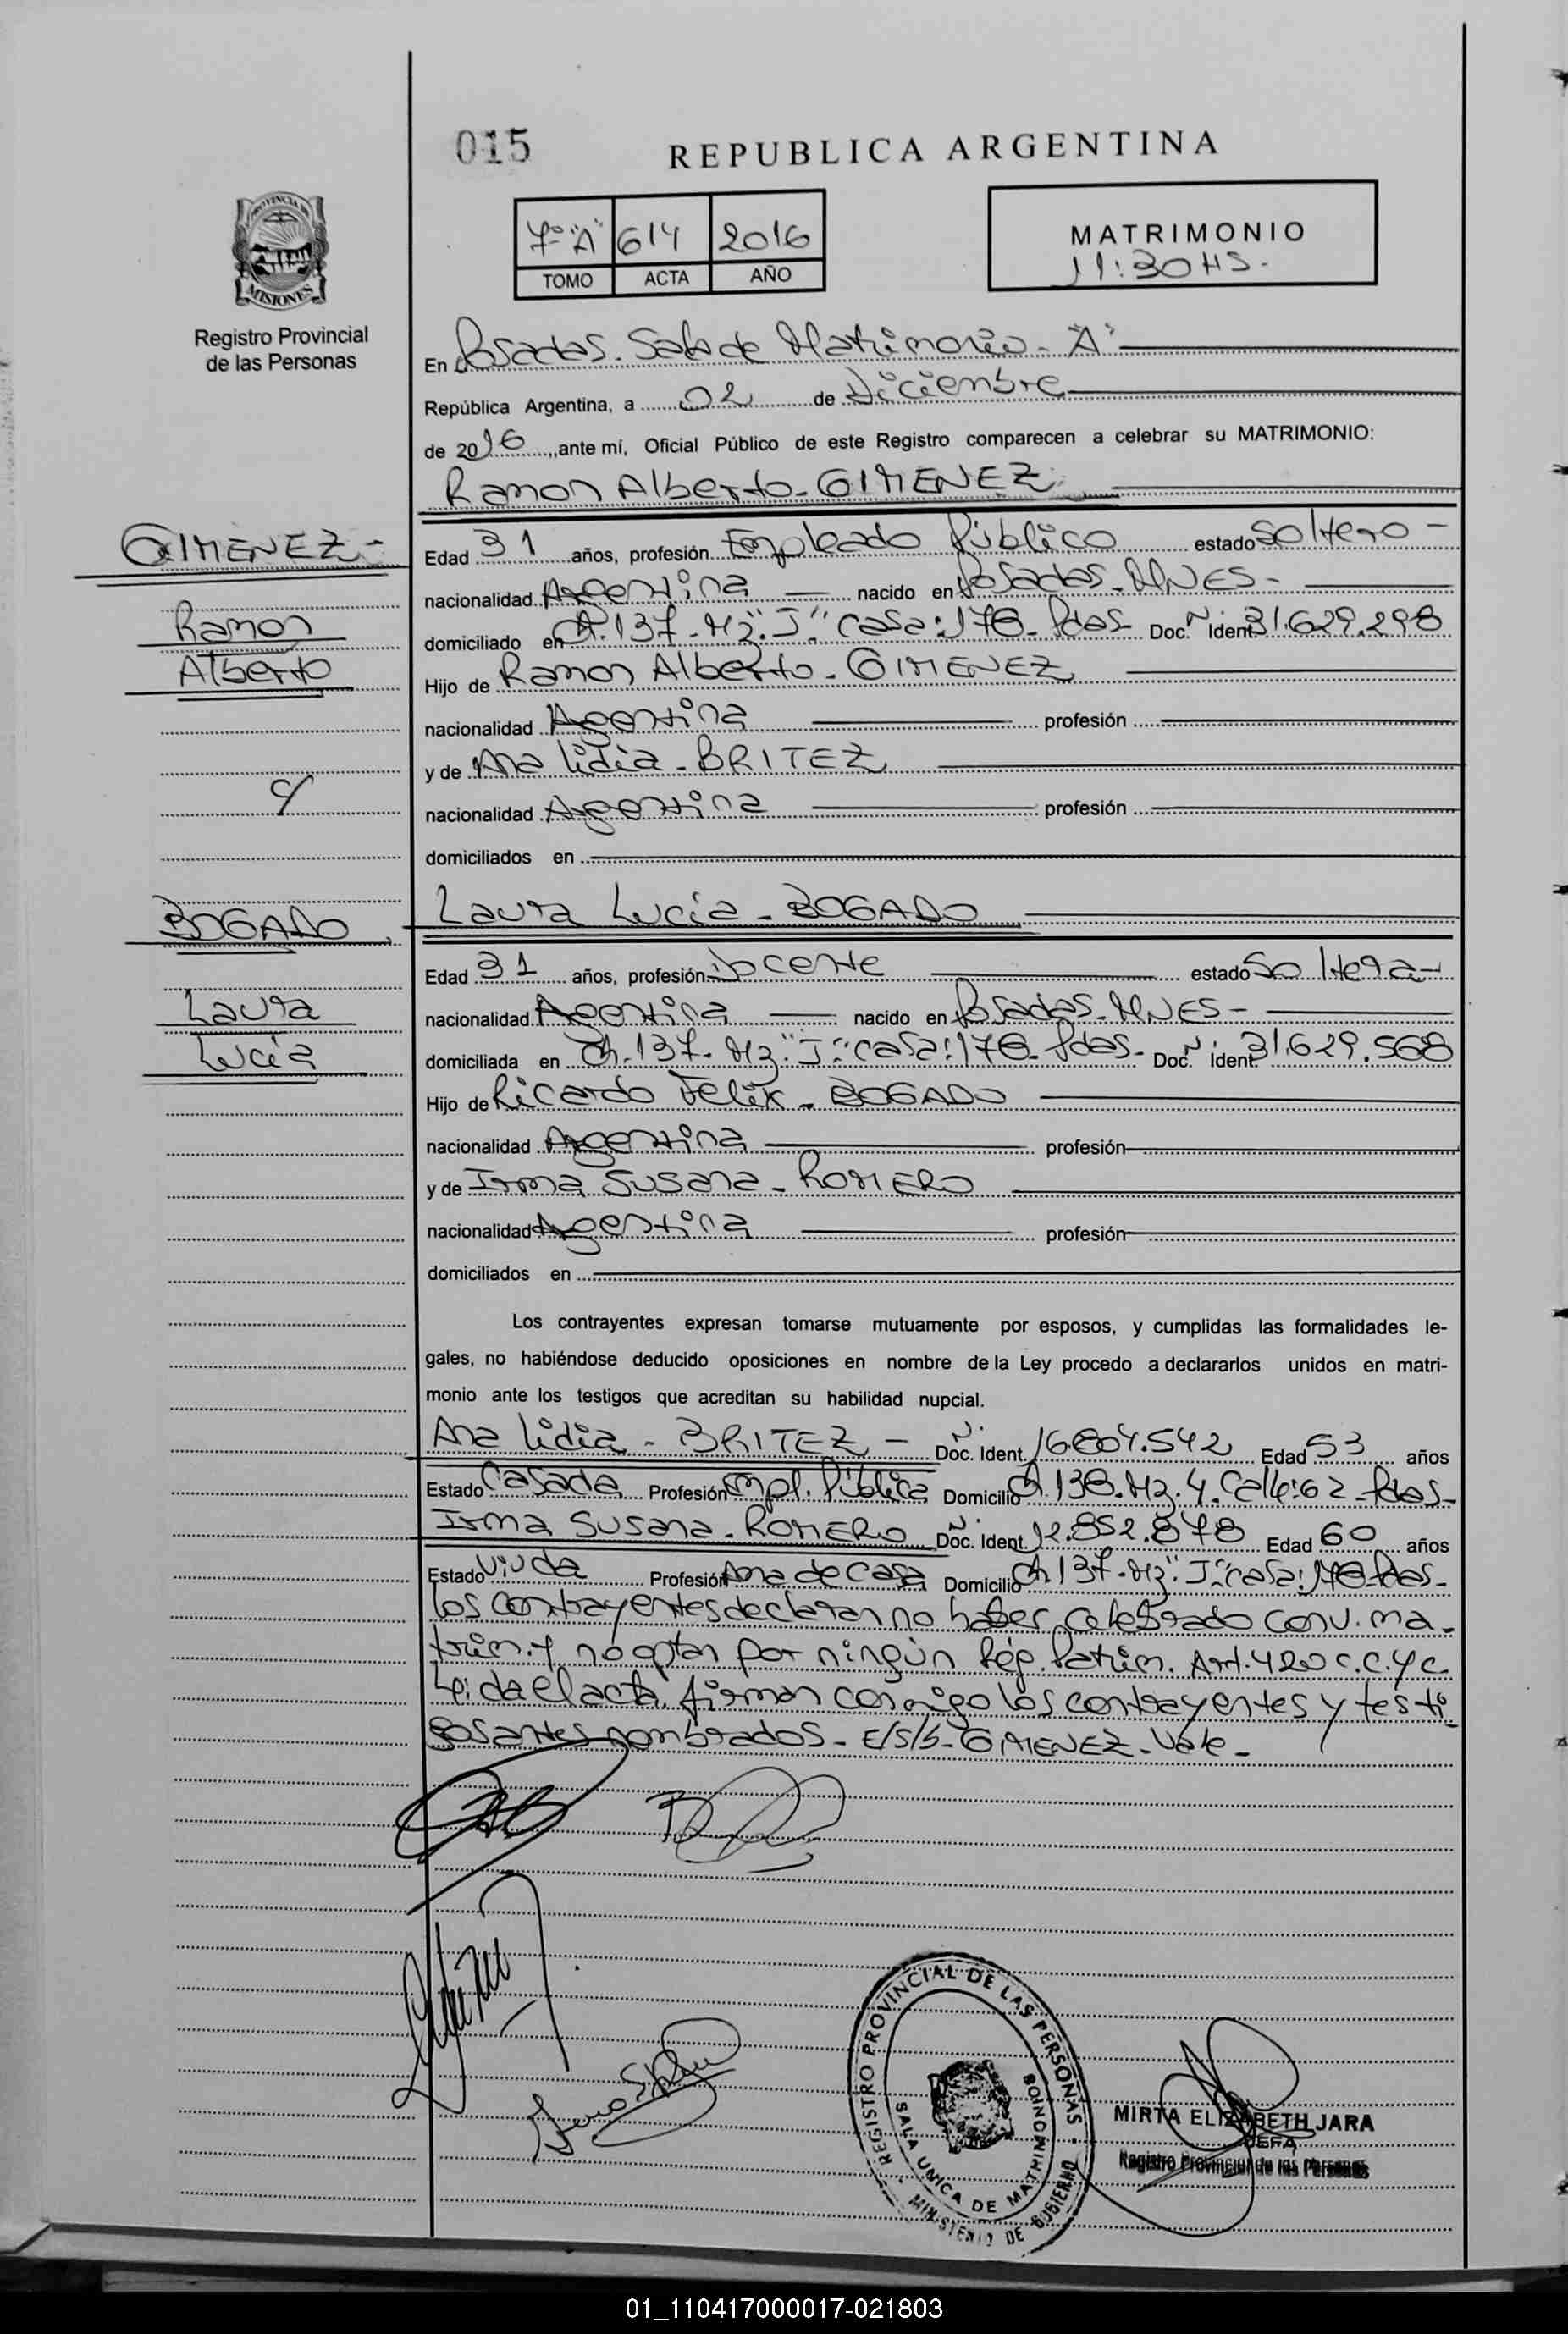 015
REPUBLICA ARGENTINA
PROVINCIA DE
MISIONES
Registro Provincial
de las Personas
7º "A" 614 2016
TOMO ACTA AÑO
MATRIMONIO
11:30 HS.
En Posadas. Sala de Matrimonio - "A"
República Argentina, a 02 de Diciembre
de 2016, ante mí, Oficial Público de este Registro comparecen a celebrar su MATRIMONIO:
Ramon Alberto - GIMENEZ
GIMENEZ -
Ramon
Alberto
c/
BOGADO
Laura
Lucía
Edad 31 años, profesión Empleado Público estado Soltero -
nacionalidad Argentina nacido en Posadas - MNES -
domiciliado en Ch. 137 - Mz. "J" Casa: 178 - Pdas - Doc. Nº Ident. 31.629.298
Hijo de Ramon Alberto - GIMENEZ
nacionalidad Argentina profesión
y de Ana Lidia - BRITEZ
nacionalidad Argentina profesión
domiciliados en
Laura Lucía - BOGADO
Edad 31 años, profesión Docente estado Soltera -
nacionalidad Argentina nacido en Posadas - MNES -
domiciliada en Ch. 137 - Mz. "J" Casa: 178 - Pdas - Doc. Nº Ident. 31.629.568
Hijo de Ricardo Felix - BOGADO
nacionalidad Argentina profesión
y de Irma Susana - ROMERO
nacionalidad Argentina profesión
domiciliados en
Los contrayentes expresan tomarse mutuamente por esposos, y cumplidas las formalidades le-
gales, no habiéndose deducido oposiciones en nombre de la Ley procedo a declararlos unidos en matri-
monio ante los testigos que acreditan su habilidad nupcial.
Ana Lidia - BRITEZ - Doc. Ident. 16.804.542 Edad 53 años
Estado Casada Profesión Empl. Pública Domicilio Ch 138. Mz. 4. Calle: 62 - Pdas -
Irma Susana - ROMERO Doc. Ident. 12.852.878 Edad 60 años
Estado Viuda Profesión Ama de Casa Domicilio Ch 137 - Mz. "J" casa: 178 - Pdas -
los contrayentes declaran no haber celebrado conv. ma-
trim. y no optar por ningún Rég. Patrim. Art. 420 C.C. y C.
Leída el acta, firman conmigo los contrayentes y testi
gos antes nombrados - E/S/b - GIMENEZ - Vale -
REGISTRO PROVINCIAL DE LAS PERSONAS
SALA UNICA DE MATRIMONIOS
MINISTERIO DE GOBIERNO
MIRTA ELIZABETH JARA
JEFA
Registro Provincial de las Personas
01_110417000017-021803